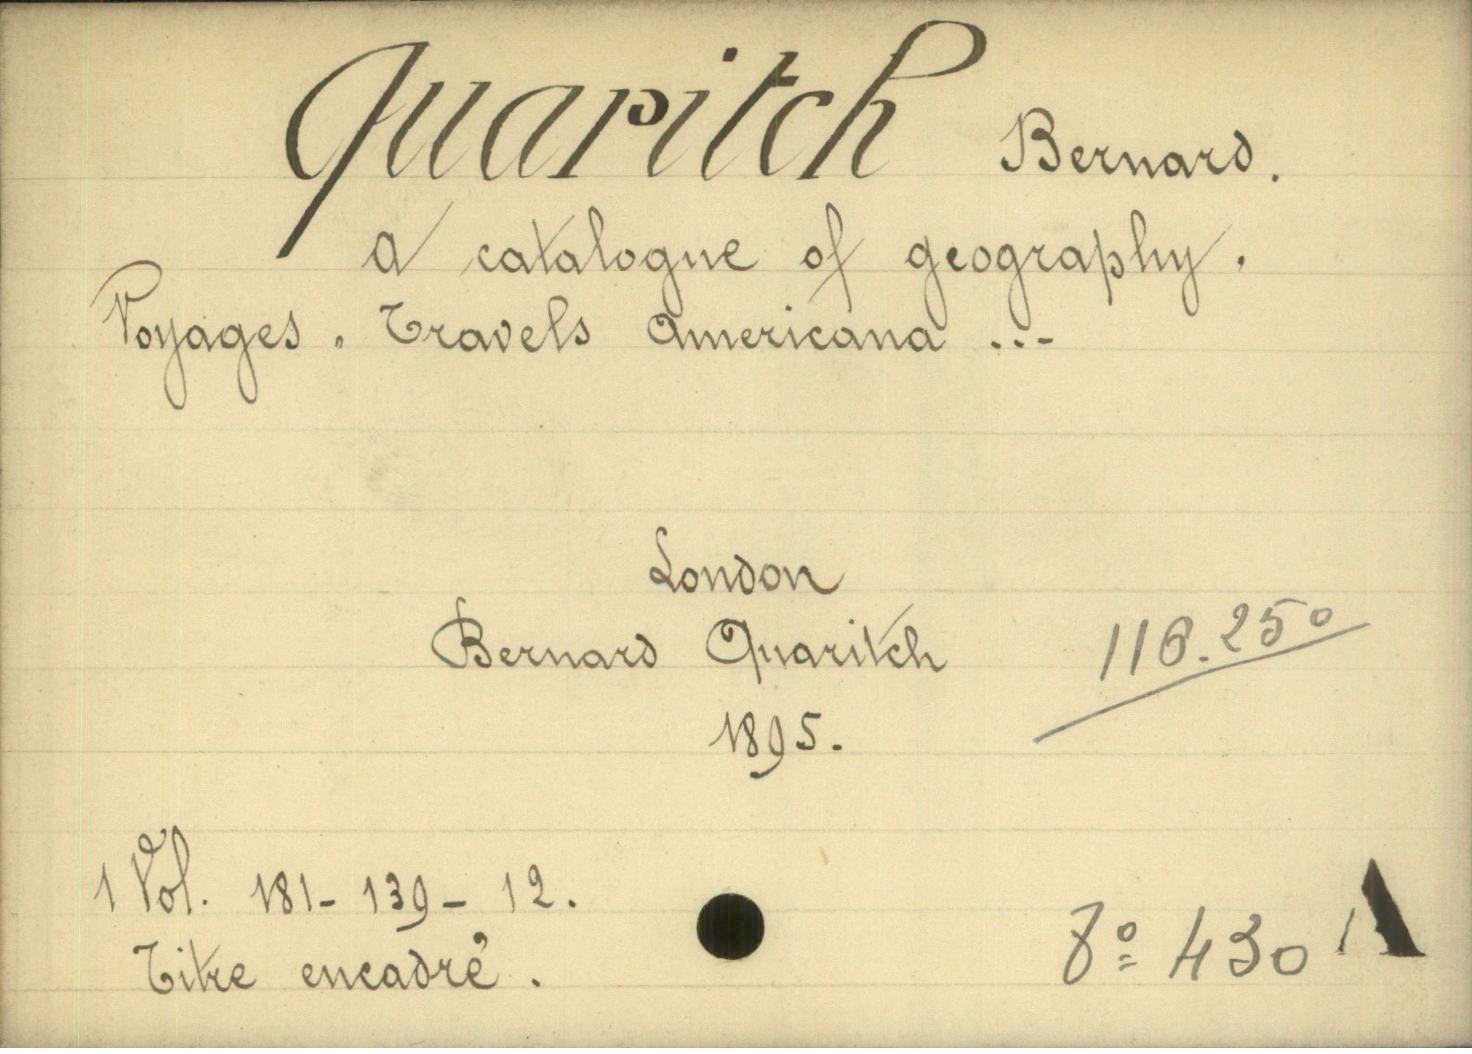 Quaritch Bernard.
A catalogue of geography.
Voyages. Travels Americana ...
London
Bernard Quaritch
1895.
116.250
1 Vol. 181- 139- 12.
Titre encadré.
8º 430 A